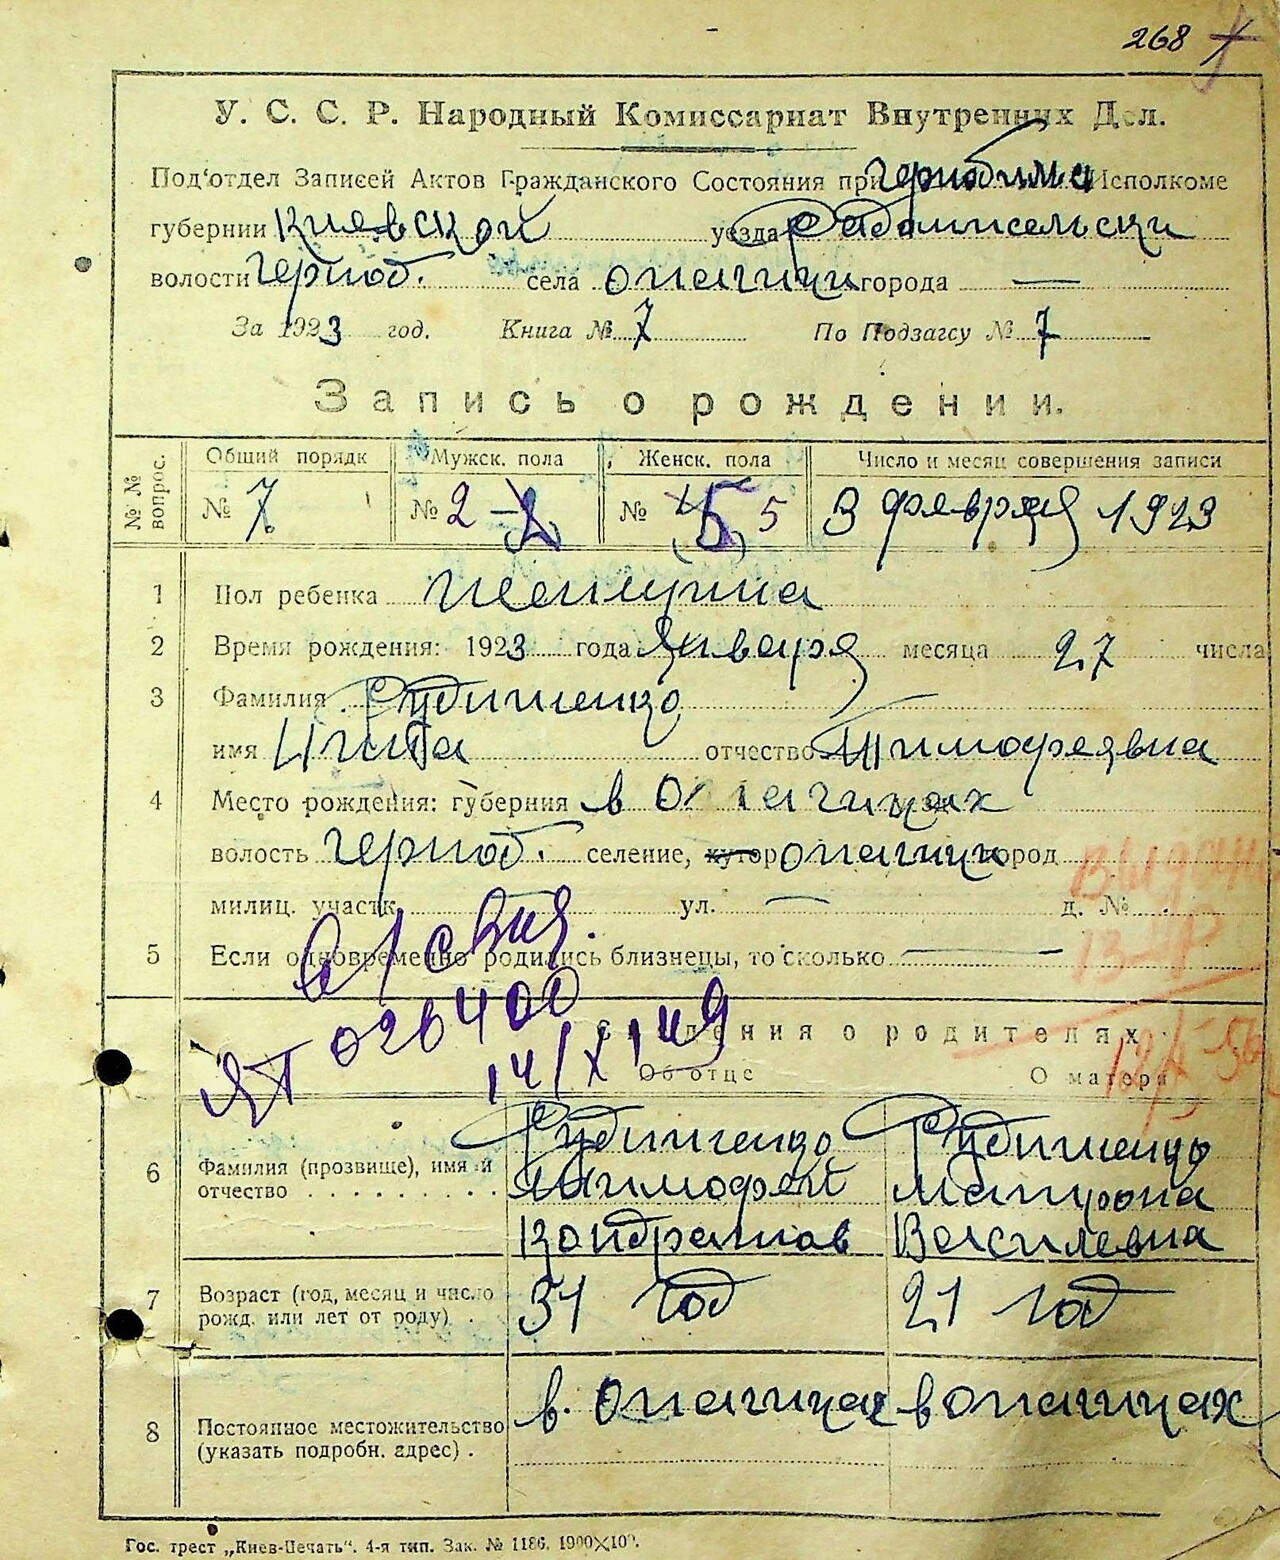 268
У. С. С. Р. Народный Комиссариат Внутренних Дел.
Под'отдел Записей Актов Гражданского Состояния при Исполкоме
губернии Киевской уезда Радомисельски
волости Черноб. села Опачичи города —
За 1923 год. Книга № 7 По Подзагсу № 7
Запись о рождении.
№ № вопрос. Общий порядк Мужск. пола Женск. пола Число и месяц совершения записи
№ 7 № 2 № 5 3 февраля 1923
1 Пол ребенка женщина
2 Время рождения: 1923 года января месяца 27 числа
3 Фамилия Рудниченко
имя отчество Тимофеявна
4 Место рождения: губерния в Опачичах
волость Черноб. селение, хутор Опачичи город
милиц. участк. ул. — д. №
5 Если одновременно родились близнецы, то сколько —
020400
14/X 149
Сведения о родителях
Об отце О матери
6 Фамилия (прозвище), имя и отчество
Рудниченко Рудниченко
Тимофей Матрона
Кондратов Василевна
7 Возраст (год, месяц и число рожд. или лет от роду) . 31 год 21 год
8 Постоянное местожительство (указать подробн. адрес) . в. Опачичах в Опачичах
Гос. трест „Киев-Печать“. 4-я тип. Зак. № 1186.